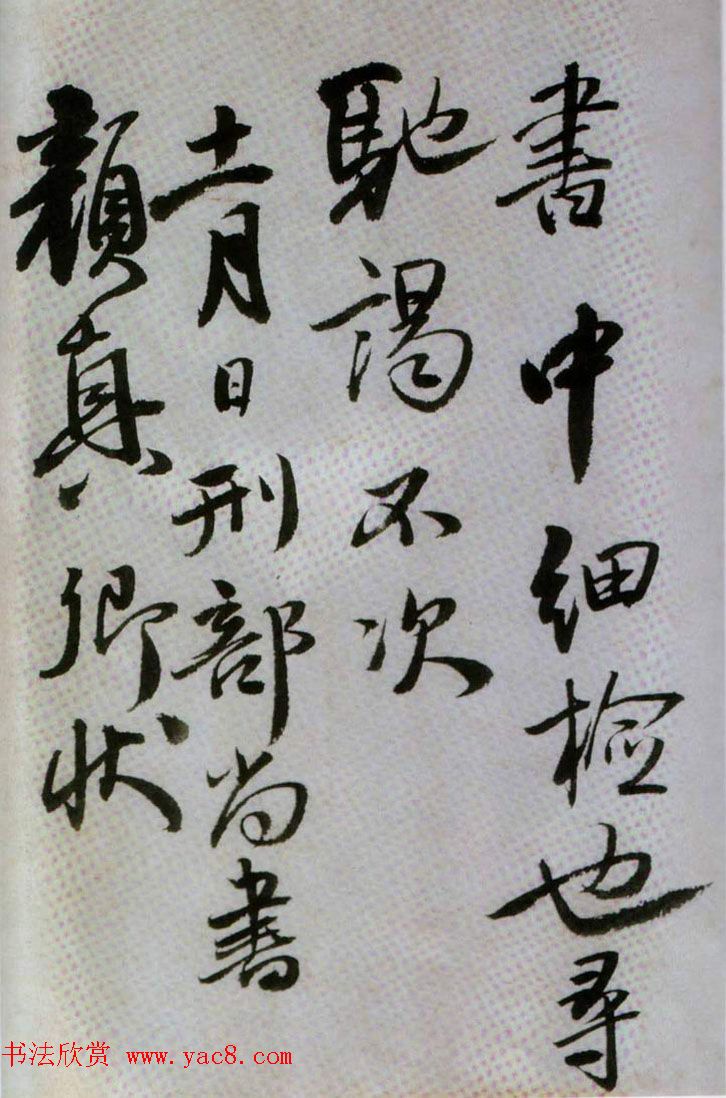 書中細檢也尋
馳謁不次
十一月日刑部尚書
顏真卿狀
书法欣赏 www.yac8.com